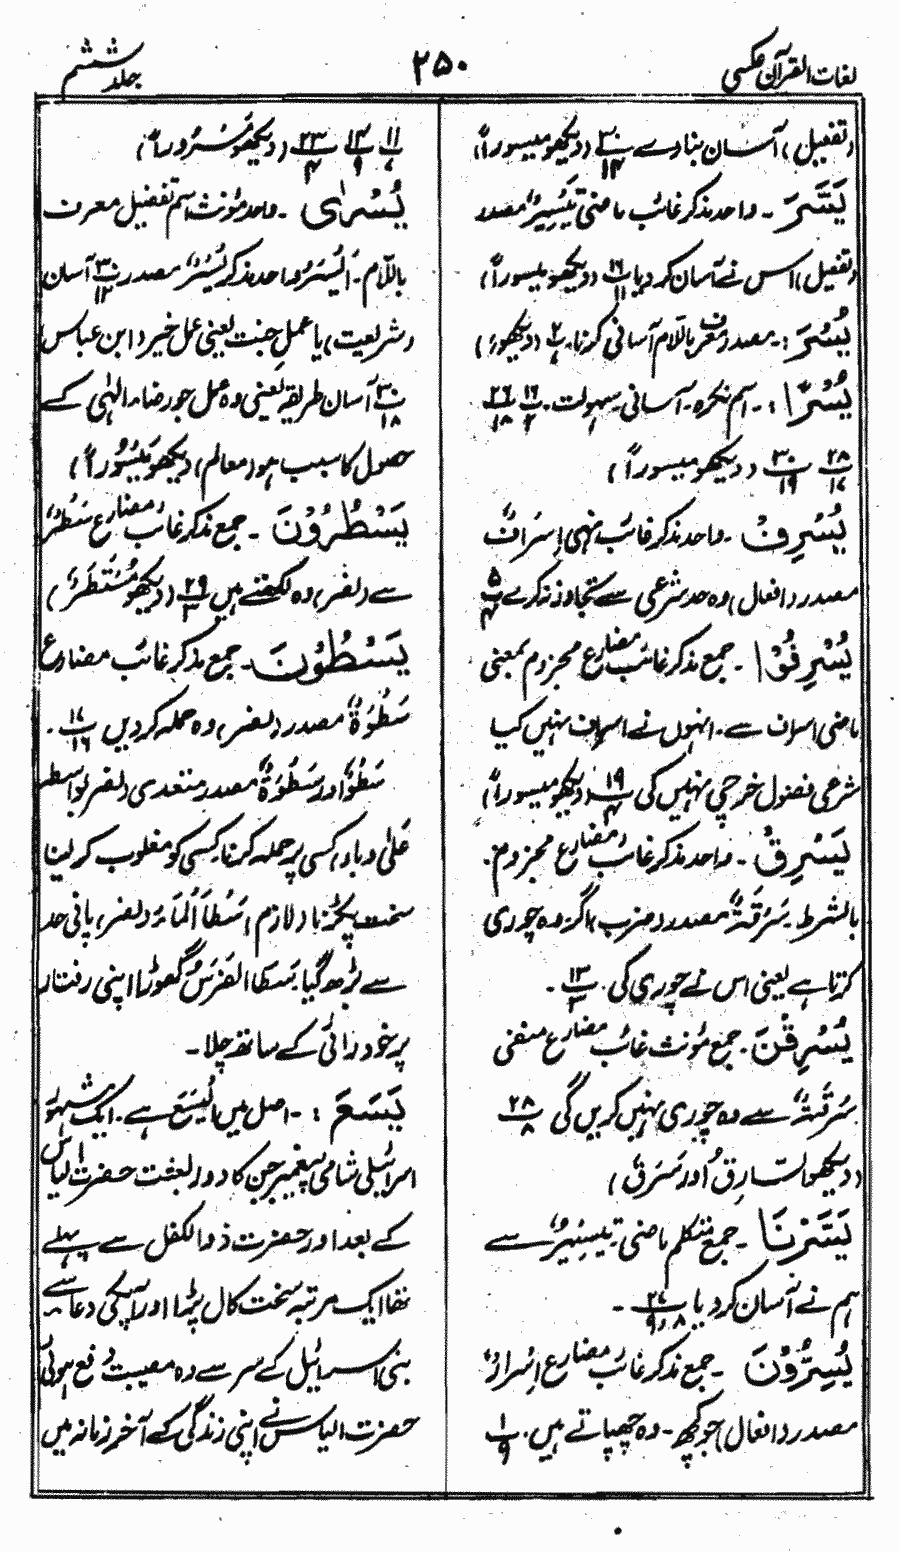 لغات القرآن عکسی ۲۵۰ جلد ششم
(تفعیل) آسان بنادے ۳۰ ۱۳ (دیکھو میسوراً)
یَسَّرَ ۔ واحد مذکر غائب ماضی تَیْسِیْرٌ مصدر
(تفعیل) اس نے آسان کر دیا پ ۱۶ ۱۱ (دیکھو میسوراً)
یُسْرَ: ۔ مصدر معرف باللام آسانی کرنا۔ پ ۲ (دیکھو)
یُسْرًا: ۔ اسم نکرہ ۔ آسانی ۔ سہولت ۔ پ ۱۶ ۲ ۲۶ ۱۸
۲۸ ۱۷ ۳۰ ۱۹ (دیکھو میسوراً)
یُسْرِفْ ۔ واحد مذکر غائب نہی اِسْرَافٌ
مصدر (افعال) وہ حد شرعی سے تجاوز نہ کرے پ ۵ ۴
یُسْرِفُوْا ۔ جمع مذکر غائب مضارع مجزوم بمعنی
ماضی اسراف سے ۔ انہوں نے اسراف نہیں کیا
شرعی فضول خرچی نہیں کی ۱۹ ۴ (دیکھو میسوراً)
یَسْرِقْ ۔ واحد مذکر غائب مضارع مجزوم
بالشرط ۔ سَرَقَۃٌ مصدر (ضرب) اگر وہ چوری
کرتا ہے یعنی اس نے چوری کی ۱۳ ۳ ۔
یَسْرِقْنَ ۔ جمع مؤنث غائب مضارع منفی
سَرَقَۃٌ سے وہ چوری نہیں کریں گی ۲۸ ۸
(دیکھو السارق اور سَرَقَ)
یَسَّرْنَا ۔ جمع متکلم ماضی تَیْسِیْرٌ سے
ہم نے آسان کر دیا ۲۷ ۸، ۹ ۔
یُسِرُّوْنَ ۔ جمع مذکر غائب مضارع اِسْرَارٌ
مصدر (افعال) جو کچھ ۔ وہ چھپاتے ہیں ۔ پ ۱ ۹
۱۱ ۷ ۱۴ ۹ ۲۳ ۴ (دیکھو مَسْرُوْراً)
یُسْرٰی ۔ واحد مؤنث اسم تفضیل معرف
باللام ۔ اَلْیُسْرُ واحد مذکر یُسْرٌ مصدر ۳۰ ۱۲ آسان
(شریعت) یا عملِ جنت یعنی عمل خیر (ابن عباس)
۳۰ ۱۸ آسان طریقہ یعنی وہ عمل جو رضاء الٰہی کے
حصول کا سبب ہو (معالم) دیکھو مَیْسُوْراً (
یَسْطُرُوْنَ ۔ جمع مذکر غائب مضارع سَطْرٌ
سے (نصر) وہ لکھتے ہیں ۲۹ ۳ (دیکھو مُسْتَطَرٌ)
یَسْطُوْنَ ۔ جمع مذکر غائب مضارع
سَطْوَۃٌ مصدر (نصر) وہ حملہ کر دیں ۱۷ ۱۶ ۔
سَطْوٌ اور سَطْوَۃٌ مصدر متعدی (نصر) بواسطہ
عَلٰی دبانا، کسی پر حملہ کرنا، کسی کو مغلوب کر لینا
سخت پکڑنا (لازم) سَطَا الْمَاءُ (نصر) پانی حد
سے بڑھ گیا سَطَا الْفَرَسُ گھوڑا اپنی رفتار
پر خود رائی کے ساتھ چلا ۔
یَسَعَ: ۔ اصل میں اَلْیَسَعَ ہے ۔ ایک مشہور
اسرائیلی شامی پیغمبر جن کا دور بعثت حضرت الیاس
کے بعد اور حضرت ذو الکفل سے پہلے
تھا ایک مرتبہ سخت کال پڑا اور آپ کی دعا سے
بنی اسرائیل کے سر سے وہ مصیبت دفع ہوئی
حضرت الیاس نے اپنی زندگی کے آخر زمانہ میں